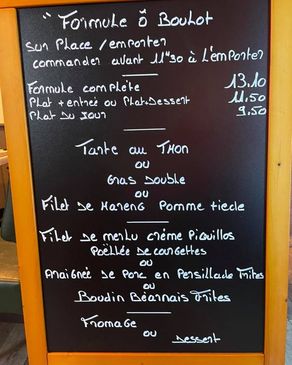 " Formule ô Boulot
Sur Place / emporter
commander avant 11h30 à l'emporter
Formule complète 13.10
Plat + entrée ou Plat.Dessert 11.50
Plat du jour 9.50
Tarte au Thon
ou
Gras Double
ou
Filet de Hareng Pomme tiède
Filet de merlu crème Piquillos
Poëllée de courgettes
ou
Araignée de Porc en Persillade Frites
ou
Boudin Béarnais Frites
Fromage
ou Dessert